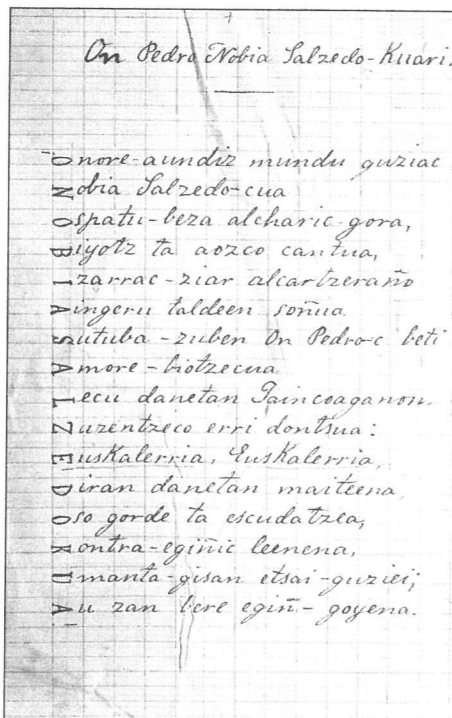 +
On Pedro Nobia Salzedo-Kuari.
Onore-aundiz mundu guziac
Nobia Salzedo-cua
Ospatu-beza alcharic-gora,
Biyotz ta aozco cantua,
Izarrac-ziar alcartzeraño
Aingeru taldeen soñua.
Sutuba-zuben On Pedro-c beti
Amore-biotzecua
Lecu danetan Jaincoaganon-
Zuzentzeco erri dontsua:
Euskalerria, Euskalerria,
Diran danetan maiteena,
Oso gorde ta escudatzea,
Kontra-egiñic leenena,
Umanta-gisan etsai-guziei;
Au zan bere egiñ-goyena.